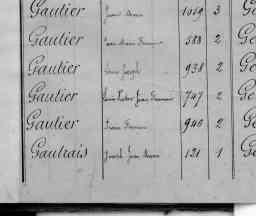 Gautier Jean 1059 3 Ge
Gautier Jean Marie François 588 2 Ge
Gautier Joseph 938 2 Ge
Gautier Louis Victor Jean François 747 2 Ge
Gautier François 946 2 Ge
Gautrais Joseph Jean Marie 121 1 Ge